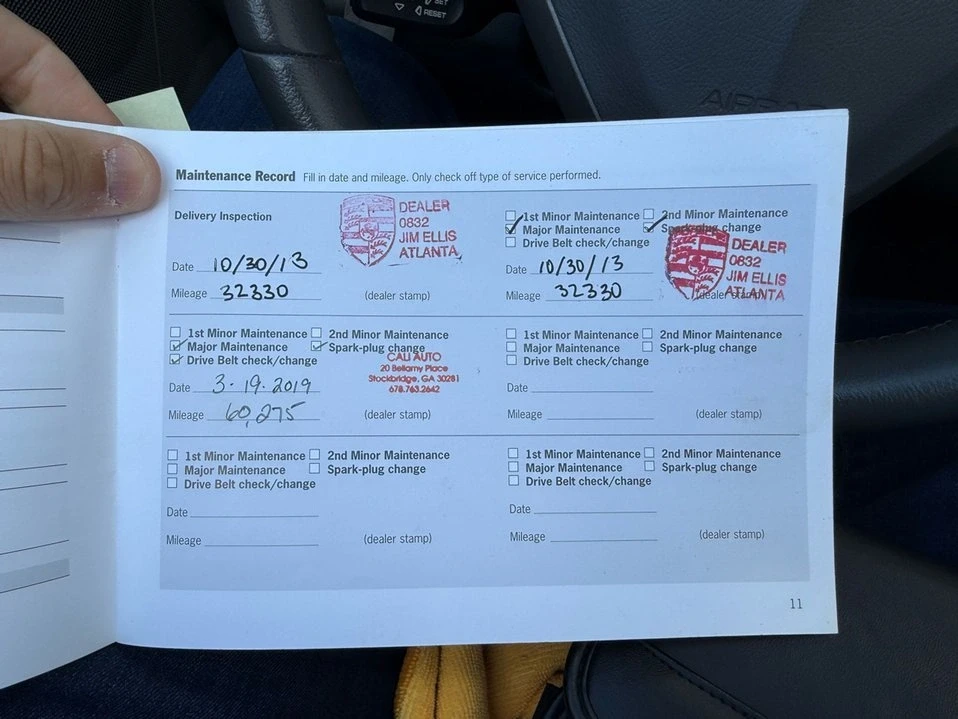 SET
RESET
AIRBAG
Maintenance Record Fill in date and mileage. Only check off type of service performed.
Delivery Inspection
DEALER
0832
JIM ELLIS
ATLANTA
Date 10/30/13
Mileage 32330
(dealer stamp)
1st Minor Maintenance 2nd Minor Maintenance
Major Maintenance Spark-plug change
Drive Belt check/change
DEALER
0832
JIM ELLIS
ATLANTA
Date 10/30/13
Mileage 32330
(dealer stamp)
1st Minor Maintenance 2nd Minor Maintenance
Major Maintenance Spark-plug change
Drive Belt check/change
CALI AUTO
20 Bellamy Place
Stockbridge, GA 30281
678.763.2642
Date 3-19-2019
Mileage 60,275
(dealer stamp)
1st Minor Maintenance 2nd Minor Maintenance
Major Maintenance Spark-plug change
Drive Belt check/change
Date
Mileage
(dealer stamp)
1st Minor Maintenance 2nd Minor Maintenance
Major Maintenance Spark-plug change
Drive Belt check/change
Date
Mileage
(dealer stamp)
1st Minor Maintenance 2nd Minor Maintenance
Major Maintenance Spark-plug change
Drive Belt check/change
Date
Mileage
(dealer stamp)
11